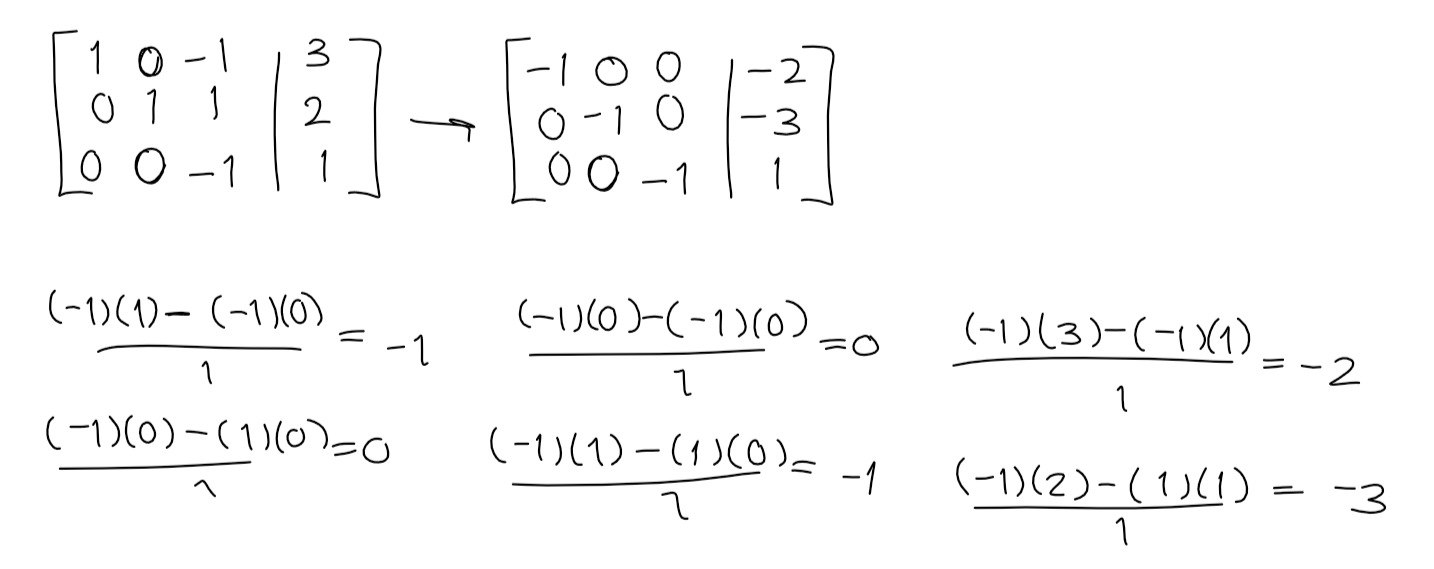 [ 1 0 -1 | 3 ] → [ -1 0 0 | -2 ]
[ 0 1 1 | 2 ] [ 0 -1 0 | -3 ]
[ 0 0 -1 | 1 ] [ 0 0 -1 | 1 ]
((-1)(1)-(-1)(0))/1 = -1 ((-1)(0)-(-1)(0))/1 = 0 ((-1)(3)-(-1)(1))/1 = -2
((-1)(0)-(1)(0))/1 = 0 ((-1)(1)-(1)(0))/1 = -1 ((-1)(2)-(1)(1))/1 = -3